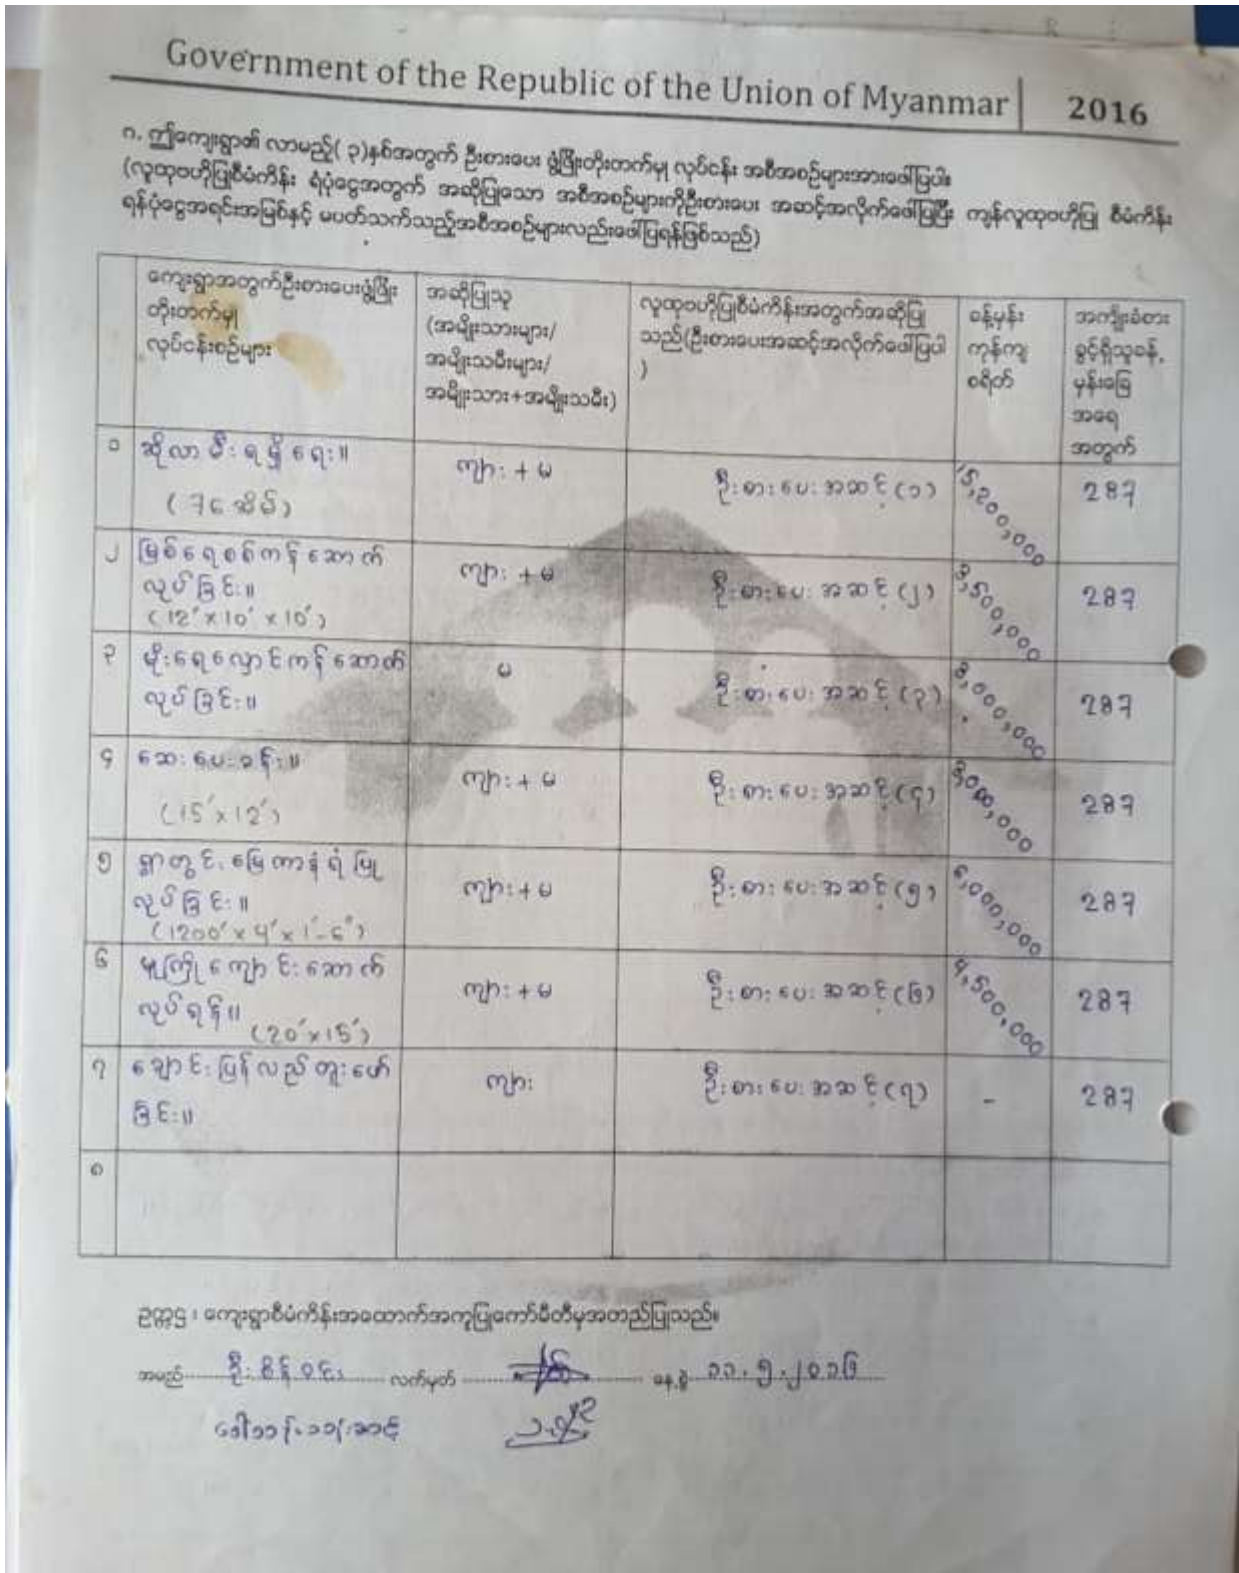 Government of the Republic of the Union of Myanmar | 2016
ဂ. ဤကျေးရွာ၏ လာမည့်(၃)နှစ်အတွက် ဦးစားပေး ဖွံ့ဖြိုးတိုးတက်မှု လုပ်ငန်း အစီအစဉ်များအားဖေါ်ပြပါ။
(လူထုဗဟိုပြုစီမံကိန်း ရံပုံငွေအတွက် အဆိုပြုသော အစီအစဉ်များကိုဦးစားပေး အဆင့်အလိုက်ဖေါ်ပြပြီး ကျန်လူထုဗဟိုပြု စီမံကိန်း
ရန်ပုံငွေအရင်းအမြစ်နှင့် မပတ်သက်သည့်အစီအစဉ်များလည်းဖေါ်ပြရန်ဖြစ်သည်)
ကျေးရွာအတွက်ဦးစားပေးဖွံ့ဖြိုး
တိုးတက်မှု
လုပ်ငန်းစဉ်များ
အဆိုပြုသူ
(အမျိုးသားများ/
အမျိုးသမီးများ/
အမျိုးသား+အမျိုးသမီး)
လူထုဗဟိုပြုစီမံကိန်းအတွက်အဆိုပြု
သည်(ဦးစားပေးအဆင့်အလိုက်ဖေါ်ပြပါ
)
ခန့်မှန်း
ကုန်ကျ
စရိတ်
အကျိုးခံစား
ခွင့်ရှိသူခန့်
မှန်းခြေ
အရေ
အတွက်
၁ ဆိုလာမီးရရှိရေး။ ကျား + မ ဦးစားပေးအဆင့်(၁) 15,200,000 287
(76 အိမ်)
၂ မြစ်ရေစစ်ကန်ဆောက် ကျား + မ ဦးစားပေးအဆင့်(၂) 3,500,000 287
လုပ်ခြင်း။
(12'x10'x10')
၃ မိုးရေလှောင်ကန်ဆောက် မ ဦးစားပေးအဆင့်(၃) 8,000,000 287
လုပ်ခြင်း။
၄ ဆေးပေးခန်း။ ကျား + မ ဦးစားပေးအဆင့်(၄) 287
(15'x12')
၅ ရွာတွင်းမြေကာနံရံပြု ကျား + မ ဦးစားပေးအဆင့်(၅) 6,000,000 287
လုပ်ခြင်း။
(1200'x4'x1'-6")
၆ မူကြိုကျောင်းဆောက် ကျား + မ ဦးစားပေးအဆင့်(၆) 4,500,000 287
လုပ်ရန်။ (20'x15')
၇ ချောင်းပြန်လည်တူးဖော် ကျား ဦးစားပေးအဆင့်(၇) - 287
ခြင်း။
၈
ဥက္ကဌ၊ ကျေးရွာစီမံကိန်းအထောက်အကူပြုကော်မီတီမှအတည်ပြုသည်။
အမည် ဦးစိန်ဝင်း လက်မှတ် နေ့စွဲ ၁၁.၅.၂၀၁၆